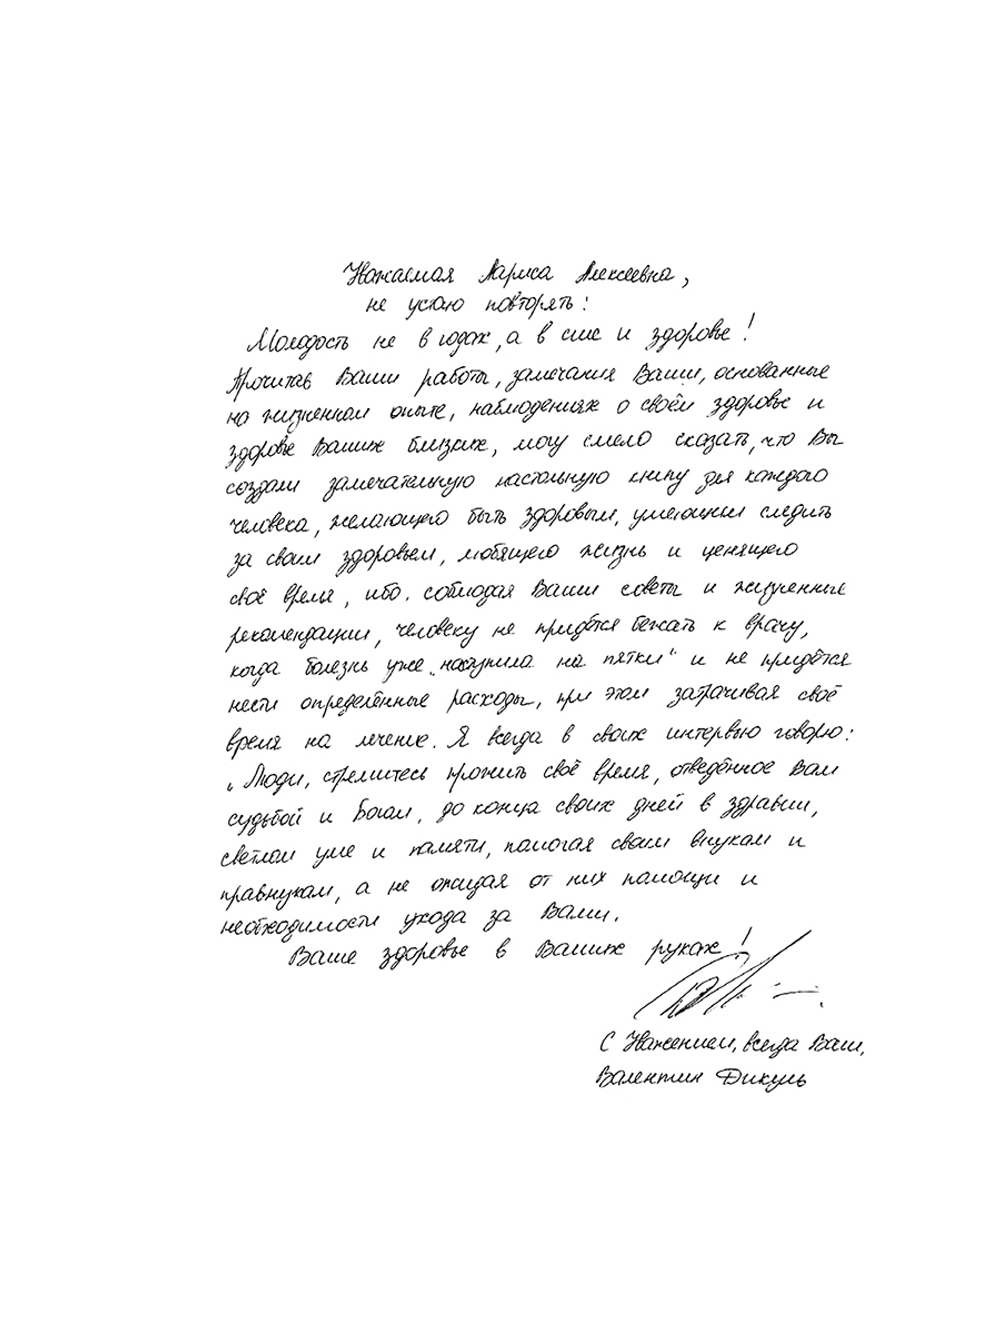 Уважаемая Лариса Алексеевна,
не устаю повторять:
Молодость не в годах, а в силе и здоровье!
Прочитав Ваши работы, замечания Ваши, основанные
на жизненном опыте, наблюдениях о своём здоровье и
здоровье Ваших близких, могу смело сказать, что Вы
создали замечательную настольную книгу для каждого
человека, желающего быть здоровым, умеющим следить
за своим здоровьем, любящего жизнь и ценящего
своё время, ибо. соблюдая Ваши советы и жизненные
рекомендации, человеку не придётся бежать к врачу,
когда болезнь уже „наступила на пятки" и не придётся
нести определённые расходы, при этом затрачивая своё
время на лечение. Я всегда в своих интервью говорю:
„Люди, стремитесь прожить своё время, отведённое Вам
судьбой и Богом, до конца своих дней в здравии,
светлом уме и памяти, помогая своим внукам и
правнукам, а не ожидая от них помощи и
необходимости ухода за Вами.
Ваше здоровье в Ваших руках!
С Уважением, всегда Ваш,
Валентин Дикуль